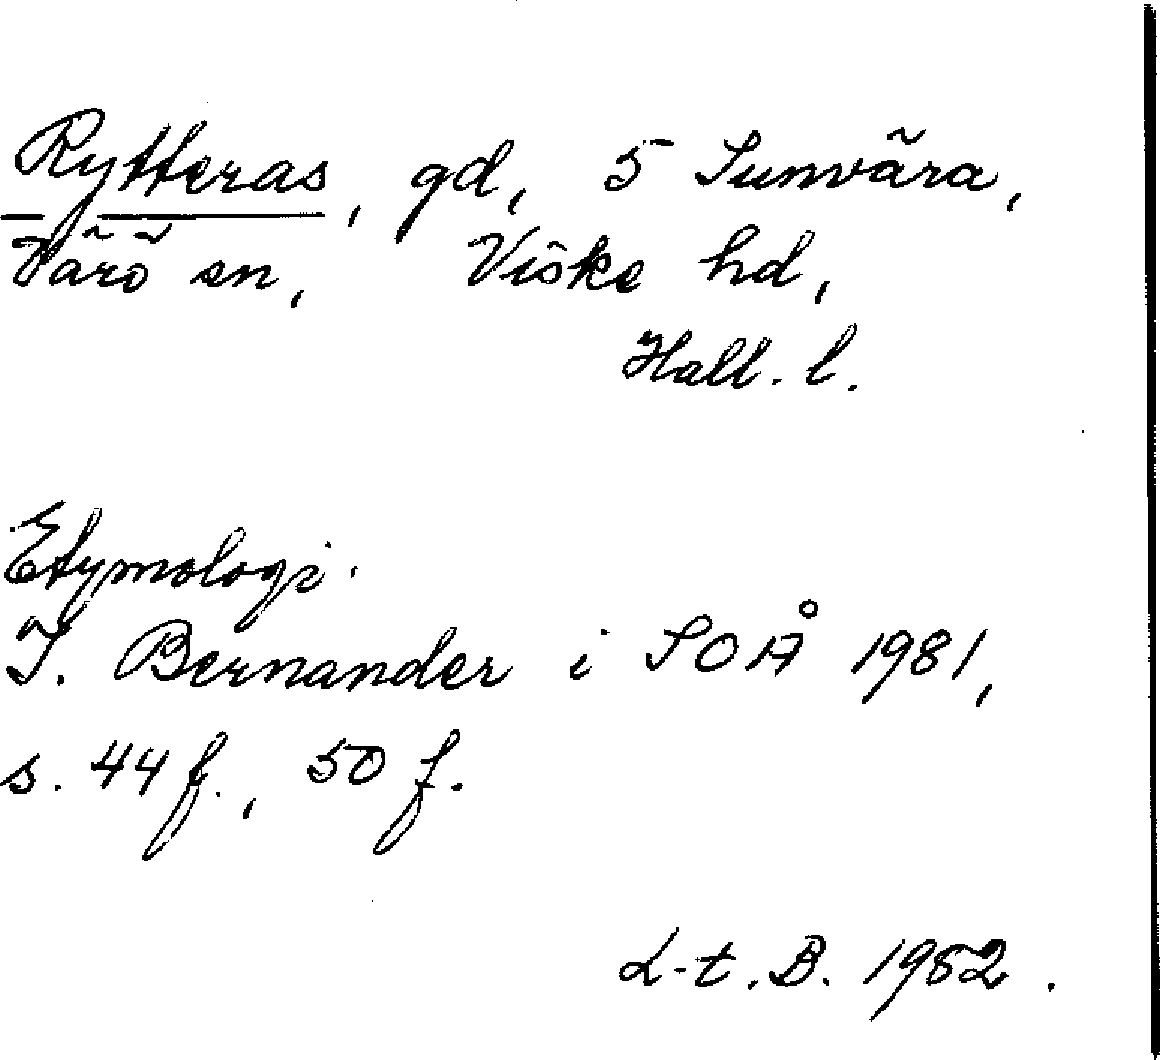 Rytteras, gd, 5 Sunvära,
Värö sn, Viske hd,
Hall. l.
Etymologi.
I. Bernander i SOÅ 1981,
s. 44 f., 50 f.
L-t. B. 1982.